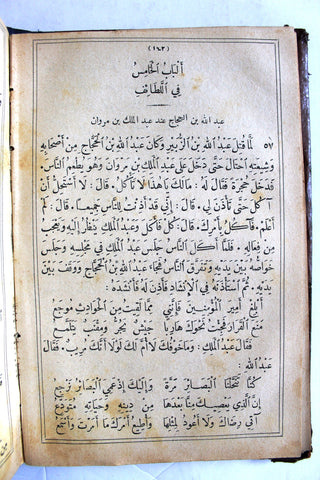 (١٤٣)
أَلْبَابُ الْخَامِسُ
فِي اللَّطَائِفِ
عبد الله بن الحجاج عند عبد الملك بن مروان
٥٧ لَمَّا قُتِلَ عَبْدُ اللهِ بْنُ الزُّبَيْرِ وَكَانَ عَبْدُ اللهِ بْنُ الْحَجَّاجِ مِنْ أَصْحَابِهِ
وَشِيعَتِهِ احْتَالَ حَتَّى دَخَلَ عَلَى عَبْدِ الْمَلِكِ بْنِ مَرْوَانَ وَهُوَ يُطْعِمُ النَّاسَ.
فَدَخَلَ حُجْرَةً فَقَالَ لَهُ: مَالَكَ يَا هٰذَا لَا تَأْكُلُ. قَالَ: لَا أَسْتَحِلُّ أَنْ
آكُلَ حَتَّى تَأْذَنَ لِي. قَالَ: إِنِّي قَدْ أَذِنْتُ لِلنَّاسِ جَمِيعًا. قَالَ: لَمْ
أَعْلَمْ. فَآكُلُ بِأَمْرِكَ. قَالَ: كُلْ فَأَكَلَ وَعَبْدُ الْمَلِكِ يَنْظُرُ إِلَيْهِ وَيَعْجَبُ
مِنْ فِعَالِهِ. فَلَمَّا أَكَلَ النَّاسُ جَلَسَ عَبْدُ الْمَلِكِ فِي مَجْلِسِهِ وَجَلَسَ
خَوَاصُّهُ بَيْنَ يَدَيْهِ وَتَفَرَّقَ النَّاسُ فَجَاءَ عَبْدُ اللهِ بْنُ الْحَجَّاجِ وَوَقَفَ بَيْنَ
يَدَيْهِ. ثُمَّ اسْتَأْذَنَهُ فِي الْإِنْشَادِ فَأَذِنَ لَهُ فَأَنْشَدَهُ:
أَبْلِغْ أَمِيرَ الْمُؤْمِنِينَ فَإِنَّنِي مِمَّا لَقِيتُ مِنَ الْحَوَادِثِ مُوجَعُ
مُنِعَ الْقَرَارَ فَجِئْتُ نَحْوَكَ هَارِبًا جَيْشٌ يَجُرُّ وَمِقْنَبٌ يَتَلَمَّعُ
فَقَالَ عَبْدُ الْمَلِكِ: وَمَا خَوْفُكَ لَا أُمَّ لَكَ لَوْلَا أَنَّكَ مُرِيبٌ. فَقَالَ
عَبْدُ اللهِ:
كُنَّا تَنَحَّلْنَا الْبَصَائِرَ مَرَّةً وَإِلَيْكَ إِذْ عَمِيَ الْبَصَائِرُ نَرْجِعُ
إِنَّ الَّذِي يَعْصِيكَ مِنَّا بَعْدَهَا مِنْ دِينِهِ وَحَيَاتِهِ مُتَوَدَّعُ
آتِي رِضَاكَ وَلَا أَعُودُ لِمِثْلِهَا وَأُطِيعُ أَمْرَكَ مَا أَمَرْتَ وَأَسْمَعُ